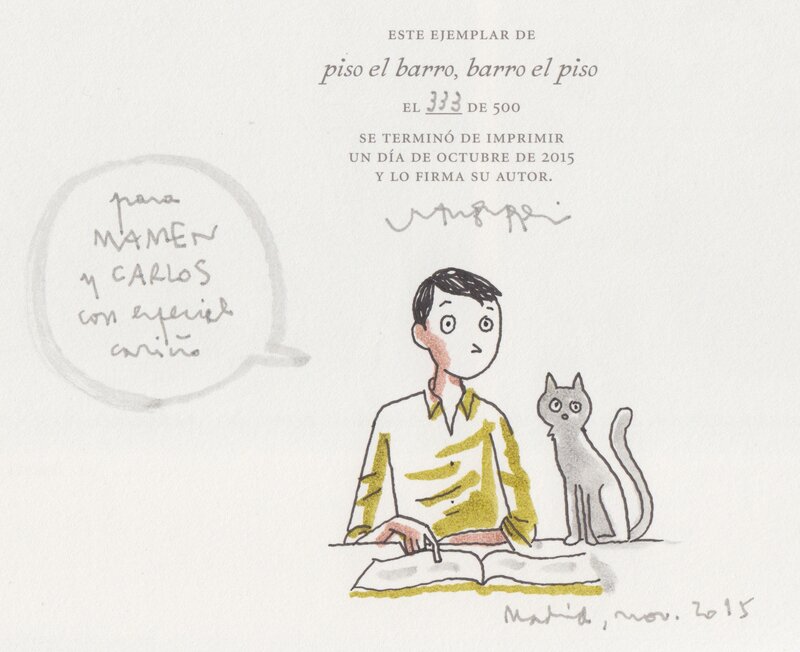 ESTE EJEMPLAR DE
piso el barro, barro el piso
EL 333 DE 500
SE TERMINÓ DE IMPRIMIR
UN DÍA DE OCTUBRE DE 2015
Y LO FIRMA SU AUTOR.
para
MAMEN
y CARLOS
con especial
cariño
Madrid, nov. 2015